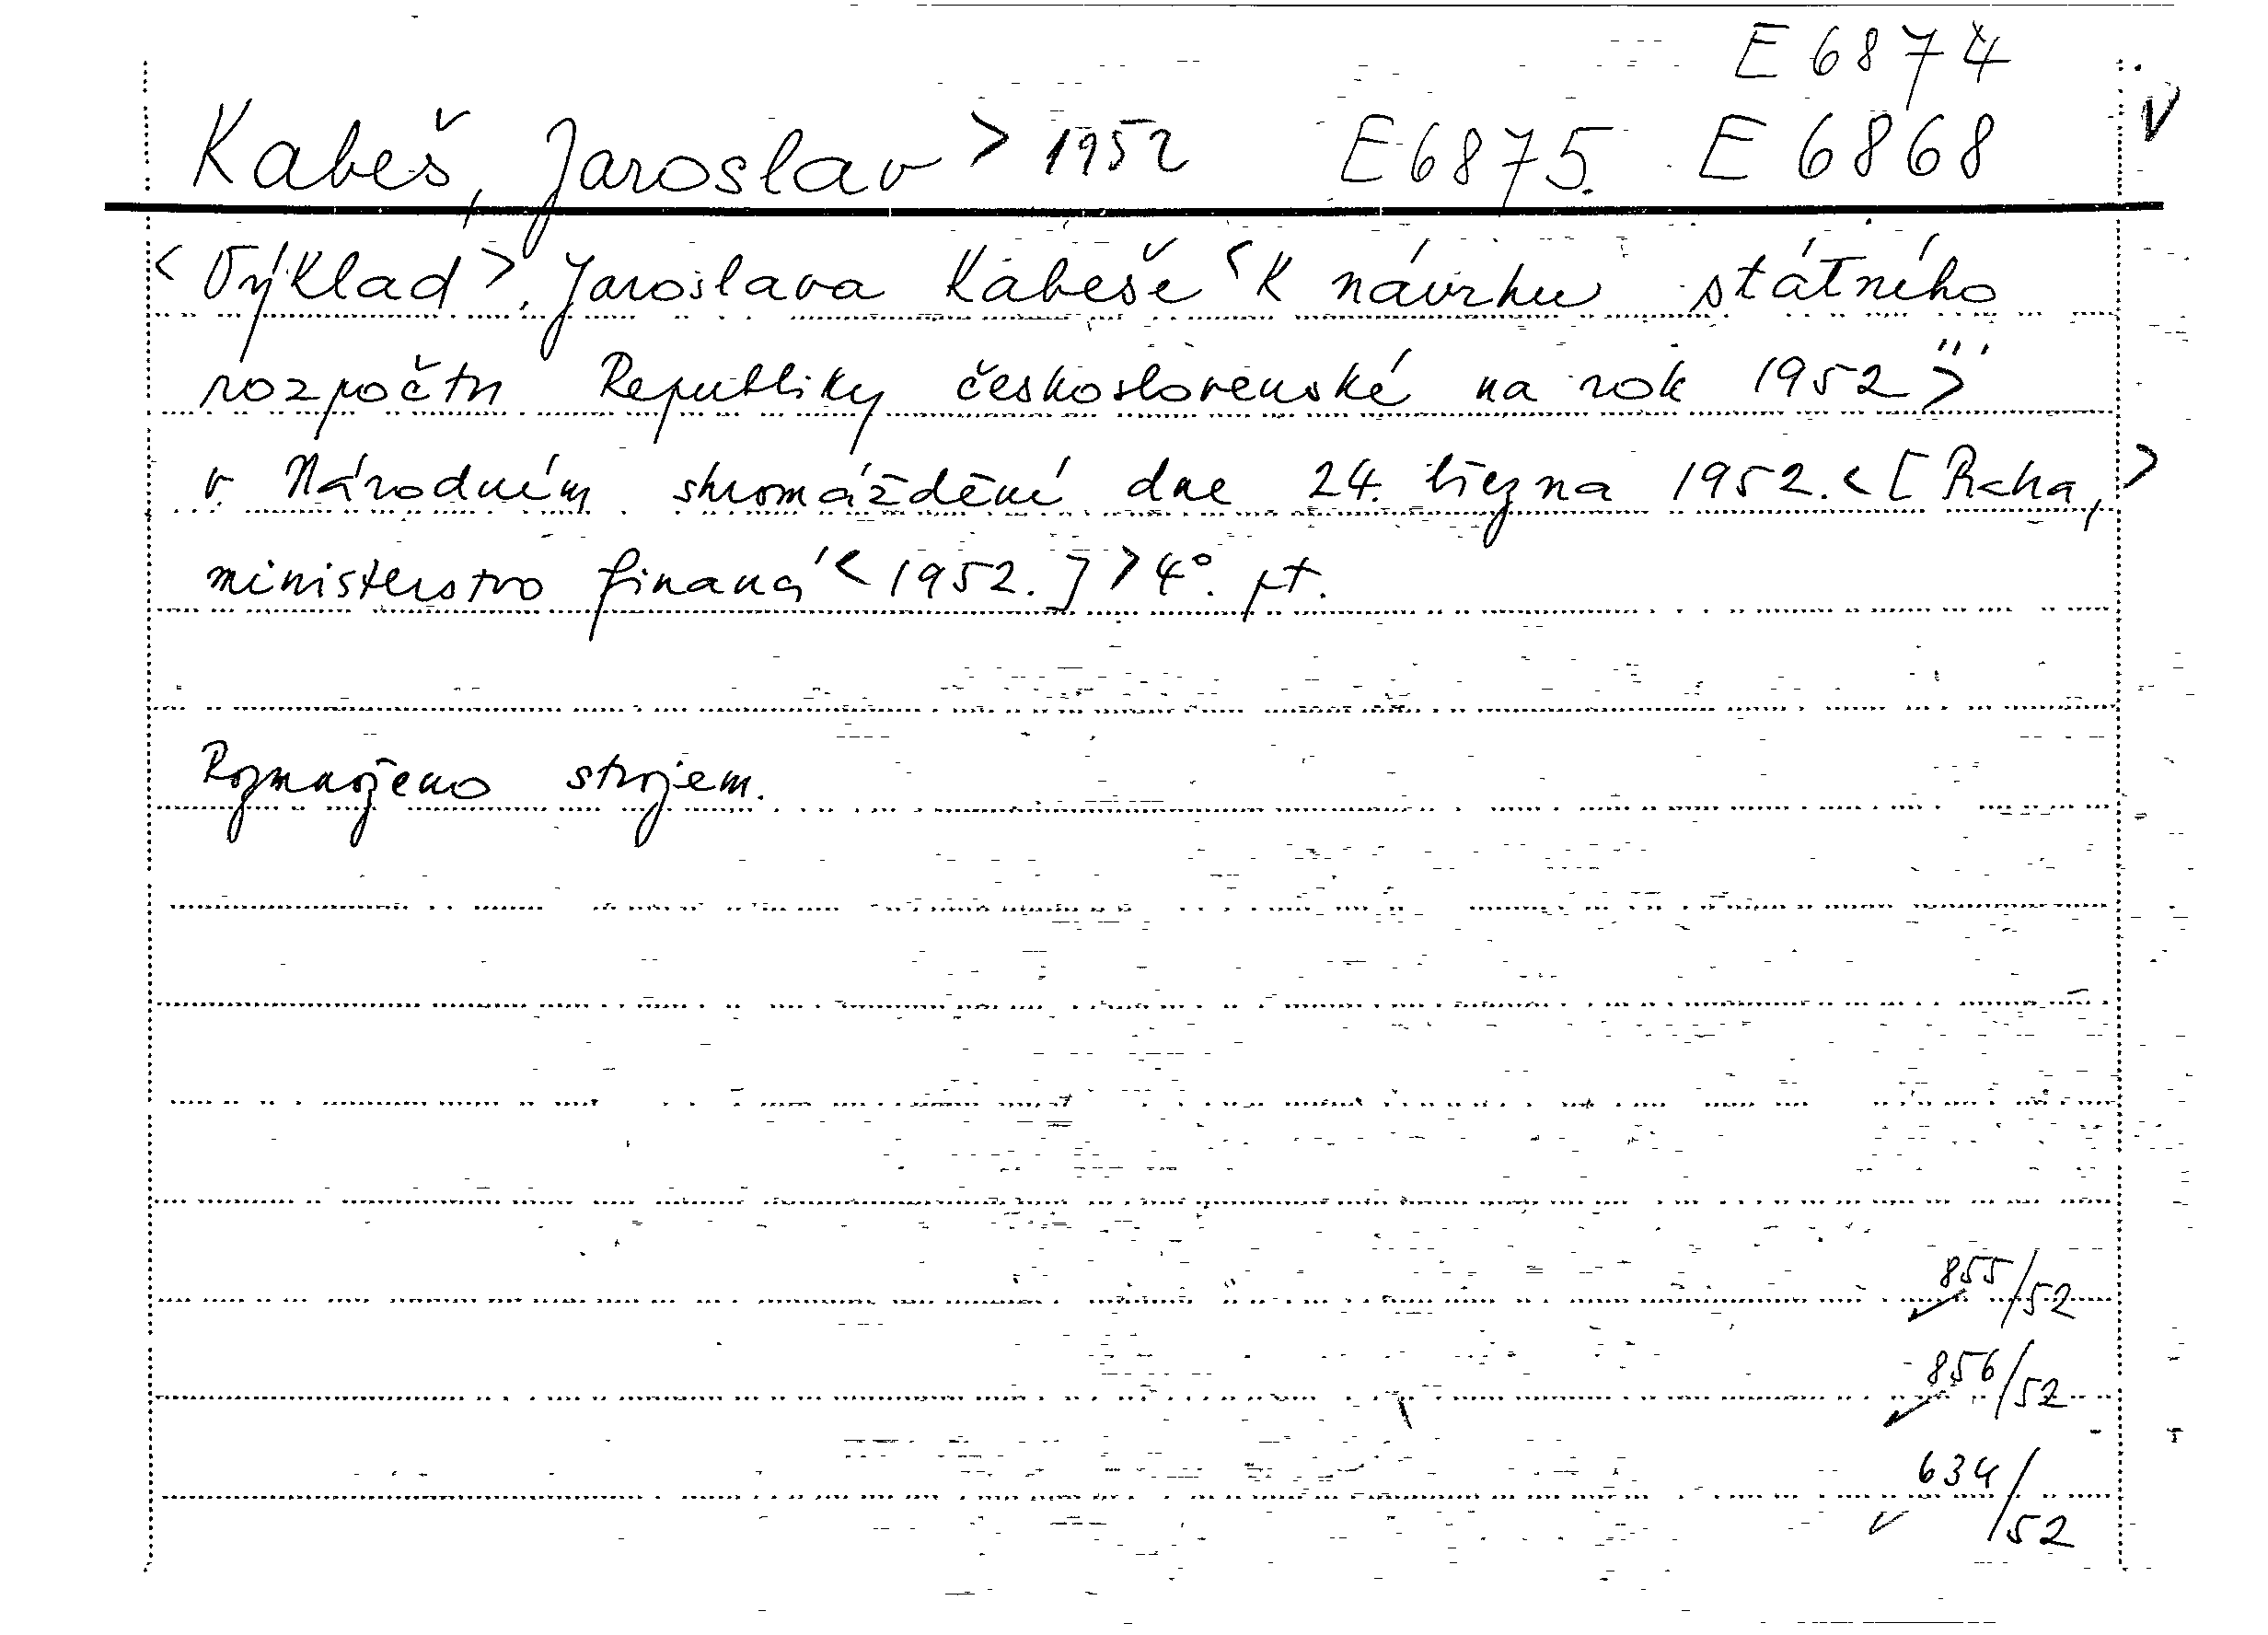 E 6874
Kabeš, Jaroslav > 1952 E 6875. E 6868 V
<Výklad>. Jaroslava Kabeše <K návrhu státního
rozpočtu Republiky československé na rok 1952>
v Národním shromáždění dne 24. března 1952. <[Praha,>
ministerstvo financí <1952.]> 4°. pt.
Rozmnoženo strojem.
855/52
856/52
634/52